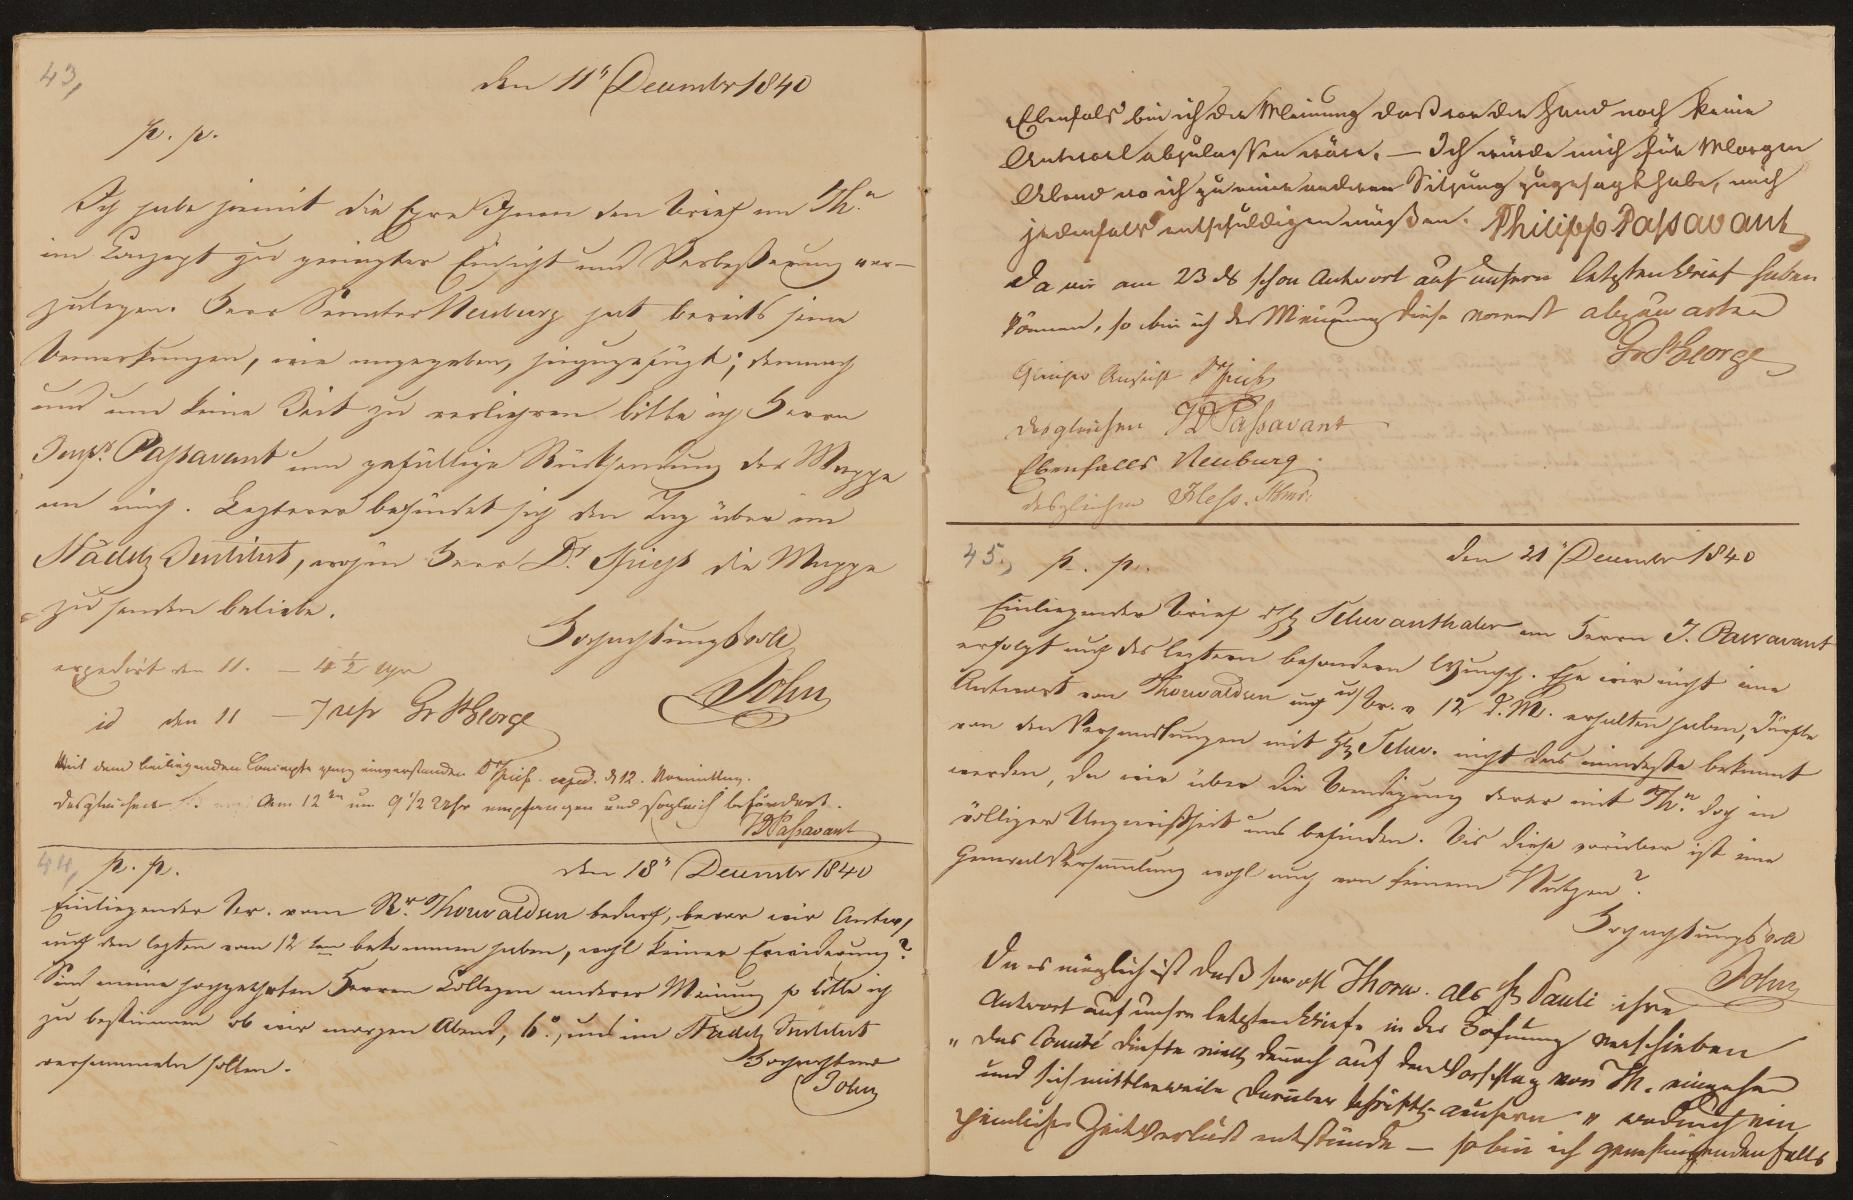 43,
den 11ⁿ December 1840
p. p.
Ich habe hiemit die Ehre Ihnen den Brief an Th.ⁿ
im Conzept zu geneigter Einsicht und Verbeßerung vor-
zulegen. Herr Senator Neuburg hat bereits seine
Bemerkungen, wie angegeben, hinzugefügt; demnach
und um keine Zeit zu verliehren bitte ich Herrn
Insp.r Passavant um gefällige Rücksendung der Mappe
an mich. Lezterer befindet sich den Tag über im
Städelz Institut, wohin Herr Dr. Spieß die Mappe
zu senden beliebe.
Hochachtungsvoll
John
expedirt den 11. — 4 1/2 Uhr
id den 11 — 7 Uhr Gr St George
Mit dem beiliegenden Concepte ganz einverstanden Dr Spieß. exped. d 12. Vormittag.
Desgleichen Am 12ten um 9 1/2 Uhr empfangen und sogleich befördert.
JD Passavant
44,
p. p.
den 18ⁿ December 1840
Einliegender Br. vom Rr. Thorwaldsen bedarf, bevor wir Antw.
auf den lezten vom 12 ten bekommen haben, wohl keiner Erwiderung?
Sind meine hochgeehrten Herren Collegen anderer Meinung so bitte ich
zu bestimmen ob wir morgen Abend, 6 , uns im Städelz Institut
versammeln sollen.
Hochachtend
John
Ebenfals bin ich der Meinung daß vor der Hand noch keine
Antwort abzulassen wäre. — Ich würde mich für Morgen
Abend wo ich zu einer anderen Sitzung zugesagt habe, mich
jedenfals entschuldigen müßen. Philipp Passavant
Da wir am 23 ds schon Antwort auf unsern letzten Brief haben
können, so bin ich der Meinung diese vorerst abzuwarten
Gr St George
Gleicher Ansicht Dr Spieß
Desgleichen JD Passavant
Ebenfalls Neuburg.
desgleichen Hess.
45.,
p. p.
den 21ⁿ December 1840
Einliegender Brief Schwanthaler an Herrn J. Passavant
erfolgt auf des leztern besondern Wunsch. Ehe wir nicht eine
Antwort von Thorwaldsen auf u/ Br. v 12 d. M. erhalten haben, dürfte
von den Verhandlungen mit Hz Schw. nicht das mindeste bekannt
werden, da wir über die Beendigung derer mit Th.ⁿ doch in
völliger Ungewißheit uns befinden. Bis diese vorüber ist eine
Generalversammlung wohl auch von keinem Nutzen?
Hochachtungsvoll
John
Da es möglich ist daß sowohl Thorw. als Hr Pauli ihre
Antwort auf unsre letzten Briefe in der Hofnung verschieben
„ das Comité dürfte vielleicht dennoch auf den Vorschlag von Th. eingehen
und sich mittlerweile darüber schriftl. äussern „ wodurch ein
ziemlicher Zeitverlust entstünde — so bin ich